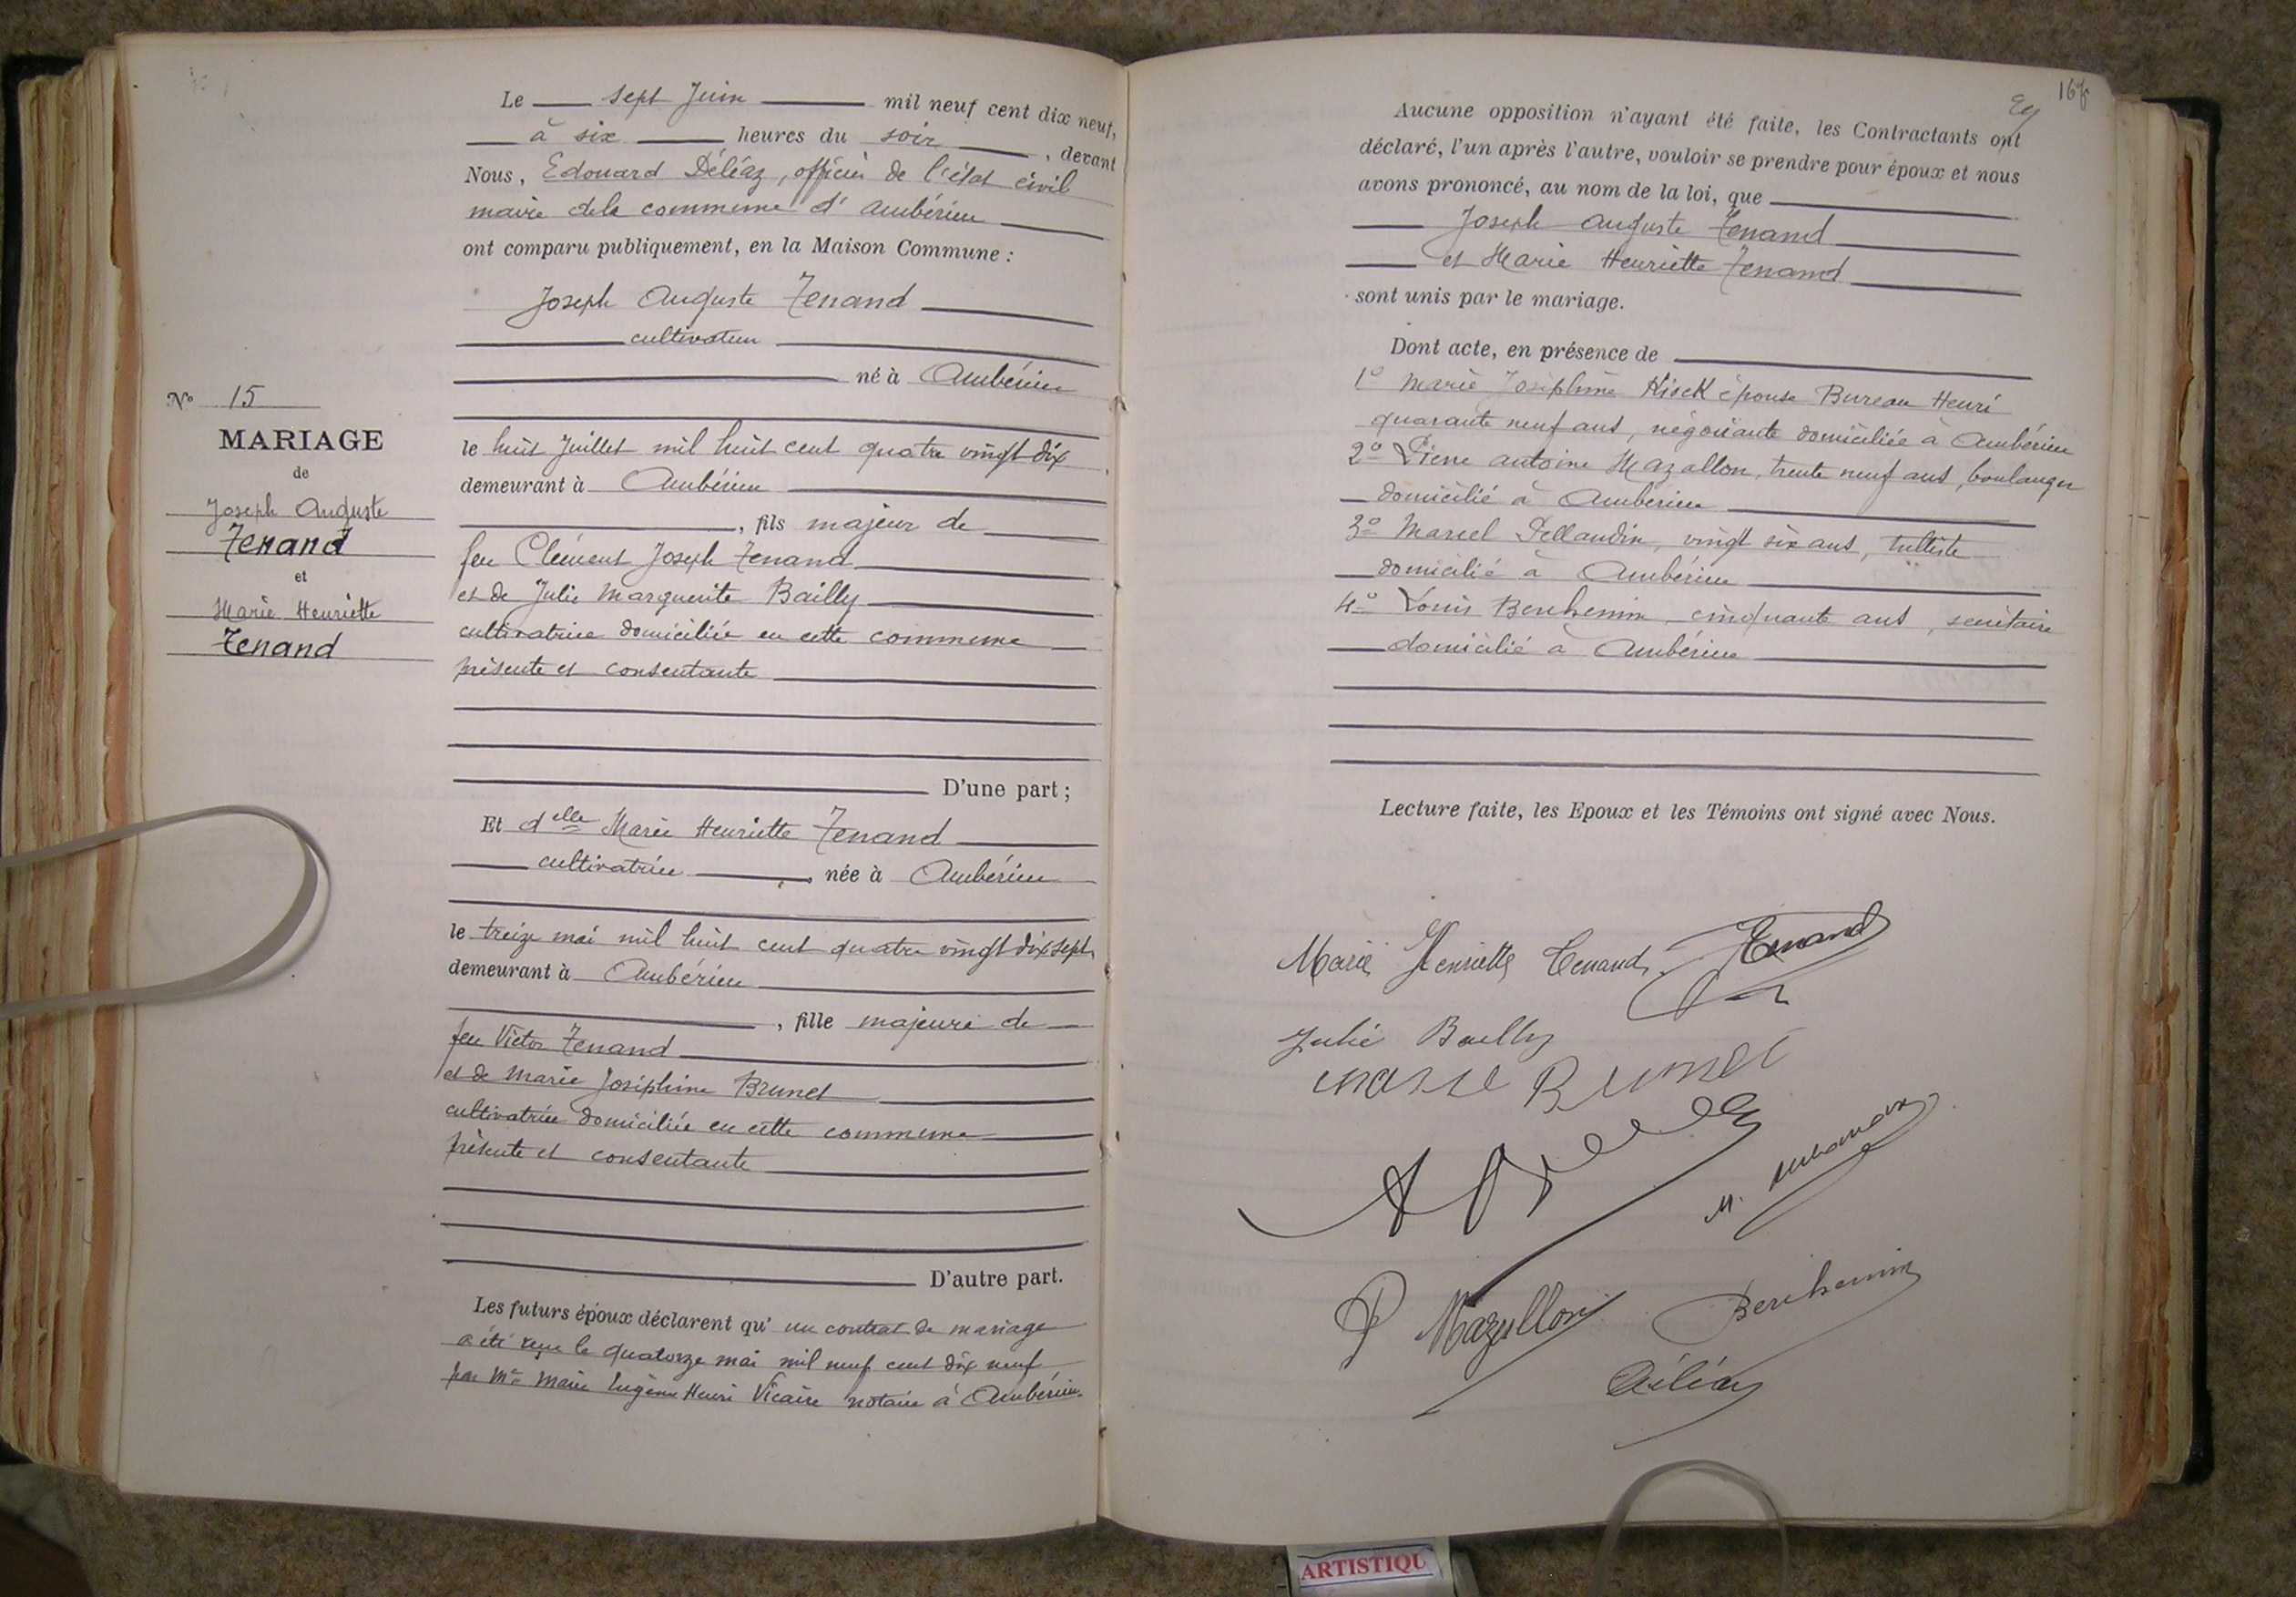 N° 15
MARIAGE
de
Joseph Auguste
Tenand
et
Marie Henriette
Tenand
Le sept Juin mil neuf cent dix neuf,
à six heures du soir, devant
Nous, Edouard Déléaz, officier de l'état civil
maire de la commune d'Ambérieu
ont comparu publiquement, en la Maison Commune :
Joseph Auguste Tenand
cultivateur
né à Ambérieu
le huit Juillet mil huit cent quatre vingt dix
demeurant à Ambérieu
, fils majeur de
feu Clément Joseph Tenand
et de Julie Marguerite Bailly
cultivatrice domiciliée en cette commune
présente et consentante
D'une part ;
Et delle Marie Henriette Tenand
cultivatrice, née à Ambérieu
le treize mai mil huit cent quatre vingt dix sept
demeurant à Ambérieu
, fille majeure de
feu Victor Tenand
et de Marie Joséphine Brunet
cultivatrice domiciliée en cette commune
présente et consentante
D'autre part.
Les futurs époux déclarent qu'un contrat de mariage
a été reçu le quatorze mai mil neuf cent dix neuf
par Me Marie Eugène Henri Vicaire notaire à Ambérieu.
Aucune opposition n'ayant été faite, les Contractants ont
déclaré, l'un après l'autre, vouloir se prendre pour époux et nous
avons prononcé, au nom de la loi, que
Joseph Auguste Tenand
et Marie Henriette Tenand
sont unis par le mariage.
Dont acte, en présence de
1° Marie Joséphine épouse Bureau Henri
quarante neuf ans, négociante domiciliée à Ambérieu
2° Pierre Antoine Mazallon, trente neuf ans, boulanger
domicilié à Ambérieu
3° Marcel vingt six ans, tulliste
domicilié à Ambérieu
4° Louis Berchemin, cinquante ans, secrétaire
domicilié à Ambérieu
Lecture faite, les Epoux et les Témoins ont signé avec Nous.
Marie Henriette Tenand Tenand
Julie Bailly
P Mazallon Berchemin
Déléaz
ARTISTIQU